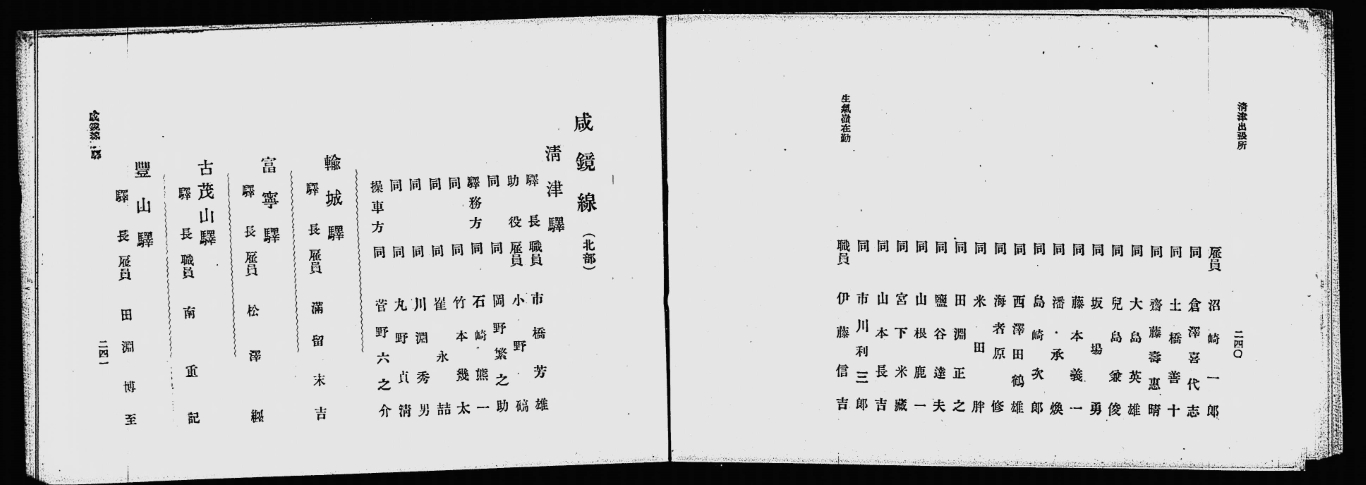 清津出張所
二四〇
雇員 沼崎一郎
同 倉澤喜代志
同 土橋善十
同 齋藤壽惠晴
同 大島英雄
同 兒島兼俊
同 坂場勇
同 藤本義一
同 潘承煥
同 島崎次郎
同 西澤田鶴雄
同 海者原修
同 米田胖
同 田淵正之
同 鹽谷達夫
同 山根鹿一
同 宮下米藏
同 山本長吉
同 市川利三郎
生氣嶺在勤
職員 伊藤信吉
咸鏡線(北部)
淸津驛
驛長 職員 市橋芳雄
助役 雇員 小野
同 同 岡野繁之助
驛務方 同 石崎熊一
同 同 竹本幾太
同 同 崔永喆
同 同 川淵秀男
同 同 丸野貞淸
操車方 同 菅野六之介
輸城驛
驛長 雇員 滿留末吉
富寧驛
驛長 雇員 松澤
古茂山驛
驛長 職員 南重記
豐山驛
驛長 雇員 田淵博至
咸鏡線 驛
二四一